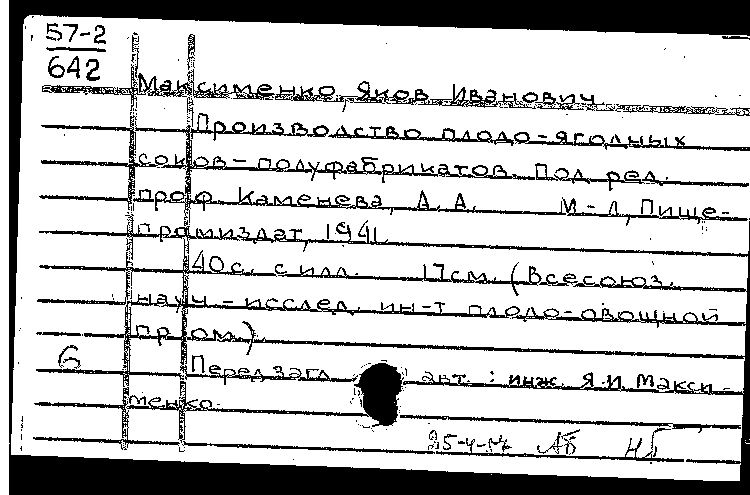 57-2
642
Максименко, Яков Иванович.
Производство плодо-ягодных
соков-полуфабрикатов. Под ред.
проф. Каменева, А. А. М-Л, Пище-
промиздат, 1941.
40с. с илл. 17см. (Всесоюз.
науч-исслед. ин-т плодо-овощной
пром.)
6
Перед загл. авт.: инж. Я.И. Макси-
менко.
25-4-57 АБ НБ